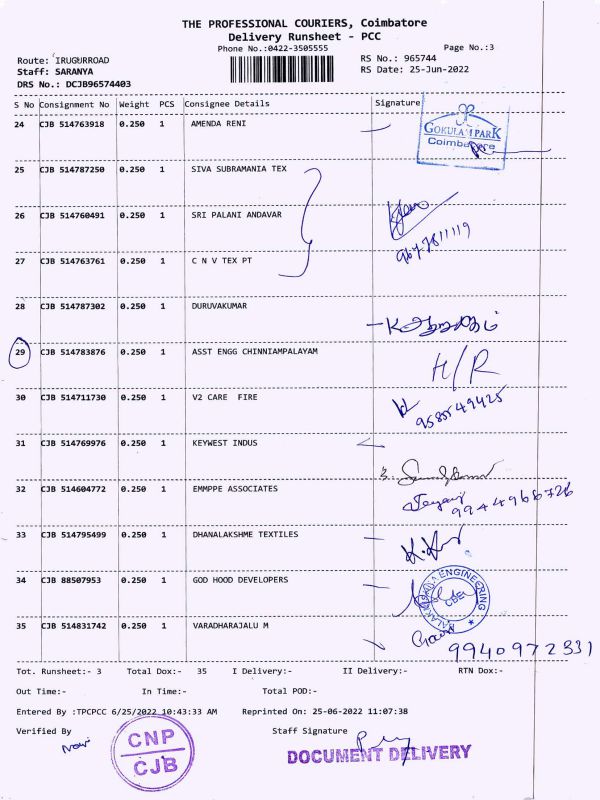 THE PROFESSIONAL COURIERS, Coimbatore
Delivery Runsheet - PCC
Phone No.:0422-3505555
Page No.:3
Route: IRUGURROAD
RS No.: 965744
Staff: SARANYA
RS Date: 25-Jun-2022
DRS No.: DCJB96574403
S No Consignment No Weight PCS Consignee Details Signature
24 CJB 514763918 0.250 1 AMENDA RENI
GOKULAM PARK
Coimbatore
25 CJB 514787250 0.250 1 SIVA SUBRAMANIA TEX
26 CJB 514760491 0.250 1 SRI PALANI ANDAVAR
27 CJB 514763761 0.250 1 C N V TEX PT
28 CJB 514787302 0.250 1 DURUVAKUMAR
29 CJB 514783876 0.250 1 ASST ENGG CHINNIAMPALAYAM H/R
30 CJB 514711730 0.250 1 V2 CARE FIRE
31 CJB 514769976 0.250 1 KEYWEST INDUS
32 CJB 514604772 0.250 1 EMMPPE ASSOCIATES
9944966726
33 CJB 514795499 0.250 1 DHANALAKSHME TEXTILES
34 CJB 88507953 0.250 1 GOD HOOD DEVELOPERS
ENGINEERING
35 CJB 514831742 0.250 1 VARADHARAJALU M
9940972331
Tot. Runsheet:- 3 Total Dox:- 35 I Delivery:- II Delivery:- RTN Dox:-
Out Time:- In Time:- Total POD:-
Entered By :TPCPCC 6/25/2022 10:43:33 AM Reprinted On: 25-06-2022 11:07:38
Verified By Staff Signature
CNP
CJB
DOCUMENT DELIVERY